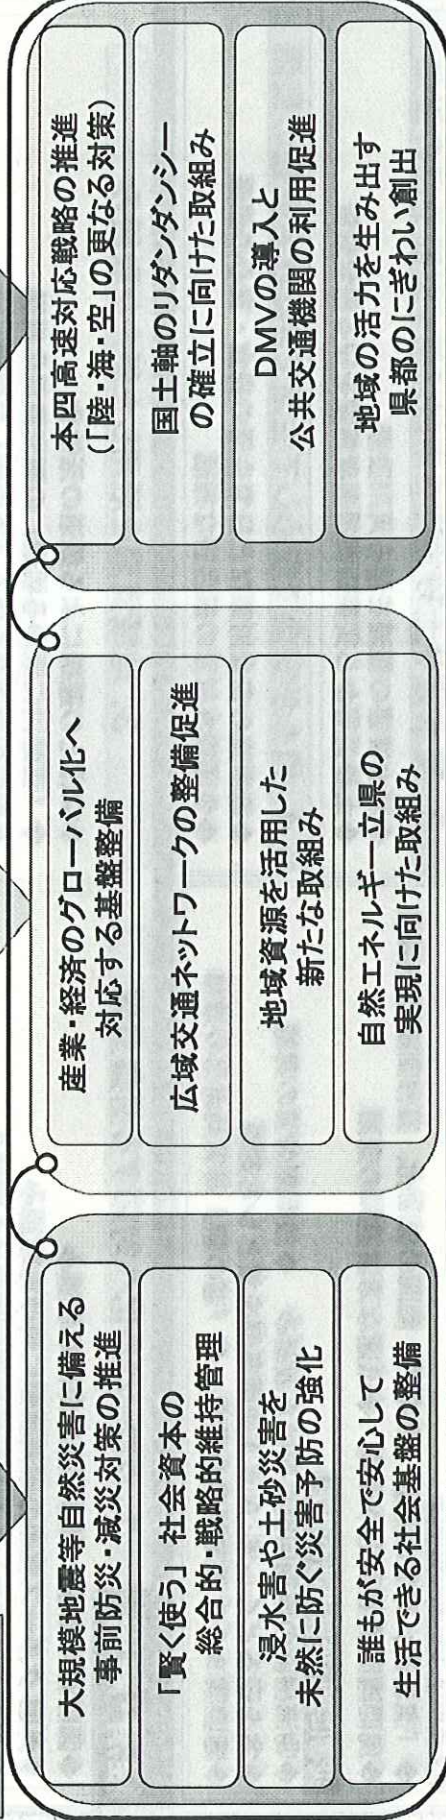 大規模地震等自然災害に備える
事前防災・減災対策の推進
「賢く使う」社会資本の
総合的・戦略的維持管理
浸水害や土砂災害を
未然に防ぐ災害予防の強化
誰もが安全で安心して
生活できる社会基盤の整備
産業・経済のグローバル化へ
対応する基盤整備
広域交通ネットワークの整備促進
地域資源を活用した
新たな取組み
自然エネルギー立県の
実現に向けた取組み
本四高速対応戦略の推進
(「陸・海・空」の更なる対策)
国土軸のリダンダンシー
の確立に向けた取組み
DMVの導入と
公共交通機関の利用促進
地域の活力を生み出す
県都のにぎわい創出